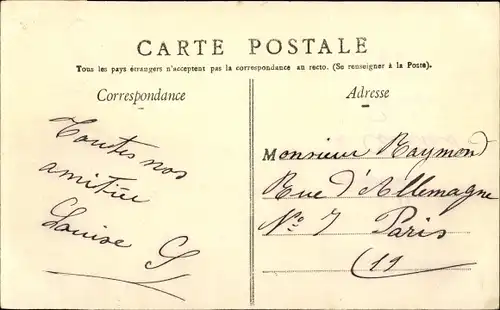 CARTE POSTALE
Tous les pays étrangers n'acceptent pas la correspondance au recto. (Se renseigner à la Poste).
Correspondance
Adresse
Toutes nos
amitiés
Louise S
Monsieur Raymond
Rue d'Allemagne
No 7 Paris
(19